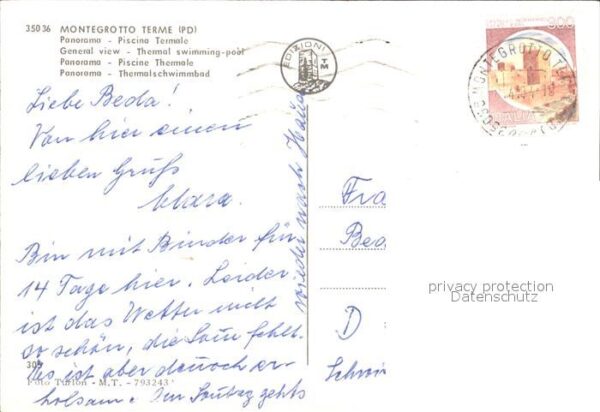 35036 MONTEGROTTO TERME (PD)
Panorama - Piscina Termale
General view - Thermal swimming-pool
Panorama - Piscine Thermale
Panorama - Thermalschwimmbad
EDIZIONI TM
300
MONTEGROTTO TERME
ITALIA
Liebe Beda!
Von hier einen
lieben Gruß
Clara.
Bin mit Bruder für
14 Tage hier. Leider
ist das Wetter nicht
so schön, die Sonn fehlt.
Es ist aber dennoch er-
holsam. Am Sonntag gehts
wieder nach Hause
309
Foto Turlon - M.T. - 793243
Fra
Bea
D
Schwei
privacy protection
Datenschutz